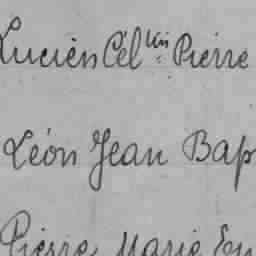 Lucien Cél^tin Pierre
Léon Jean Bap
Pierre Marie Em